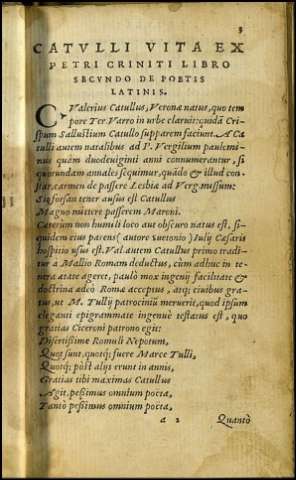 3
CATVLLI VITA EX
PETRI CRINITI LIBRO
SECVNDO DE POETIS
LATINIS.
C Valerius Catullus, Veronæ natus, quo tem
pore Ter. Varro in urbe claruit: quodā Cri-
spum Sallustium Catullo supparem faciunt. A Ca
tulli autem natalibus ad P. Vergilium paulo mi-
nus quàm duodeuiginti anni connumerantur, si
quorundam annales sequimur, quādo & illud con-
stat, carmen de passere Lesbiæ ad Verg. missum:
Sic forsan tener ausus est Catullus
Magno mittere passerem Maroni.
Cæterum non humili loco aut obscuro natus est, si-
quidem eius parens (autore Suetonio) Iulij Cæsaris
hospitio usus est. Val. autem Catullus primo tradi-
tur à Mallio Romam deductus, cùm adhuc in te-
nera ætate ageret, paulò mox ingenij facilitate &
doctrina adeò Romæ acceptus, atq; ciuibus gra-
tus, ut M. Tullij patrocinium meruerit, quod ipsum
eleganti epigrammate ingenuè testatus est, quo
gratias Ciceroni patrono egit:
Disertissime Romuli Nepotum,
Quot sunt, quotq; fuere Marce Tulli,
Quotq; pòst alijs erunt in annis,
Gratias tibi maximas Catullus
Agit, pessimus omnium poeta,
Tanto pessimus omnium poeta,
a 2 Quantò